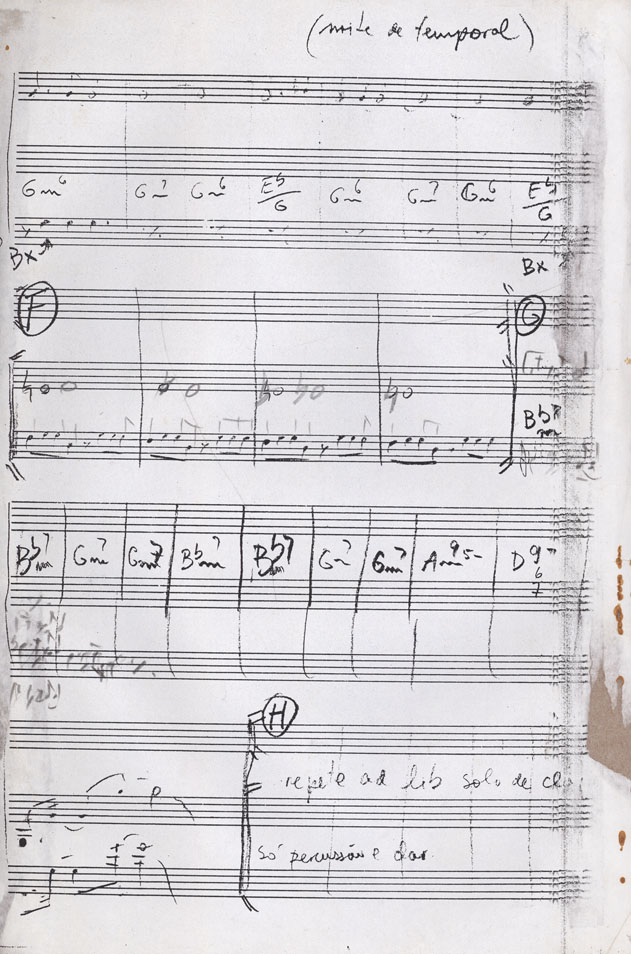 (noite de temporal)
Gm6 Gm7 Gm6 Eb/G Gm6 Gm7 Gm6 Eb/G
Bx Bx
F G
Bbm7
Bbm7 Gm7 Gm7 Bbm7 Bbm7 Gm7 Gm7 Am9 5- D9-
6
7
H
repete ad lib solo de
só percussão e